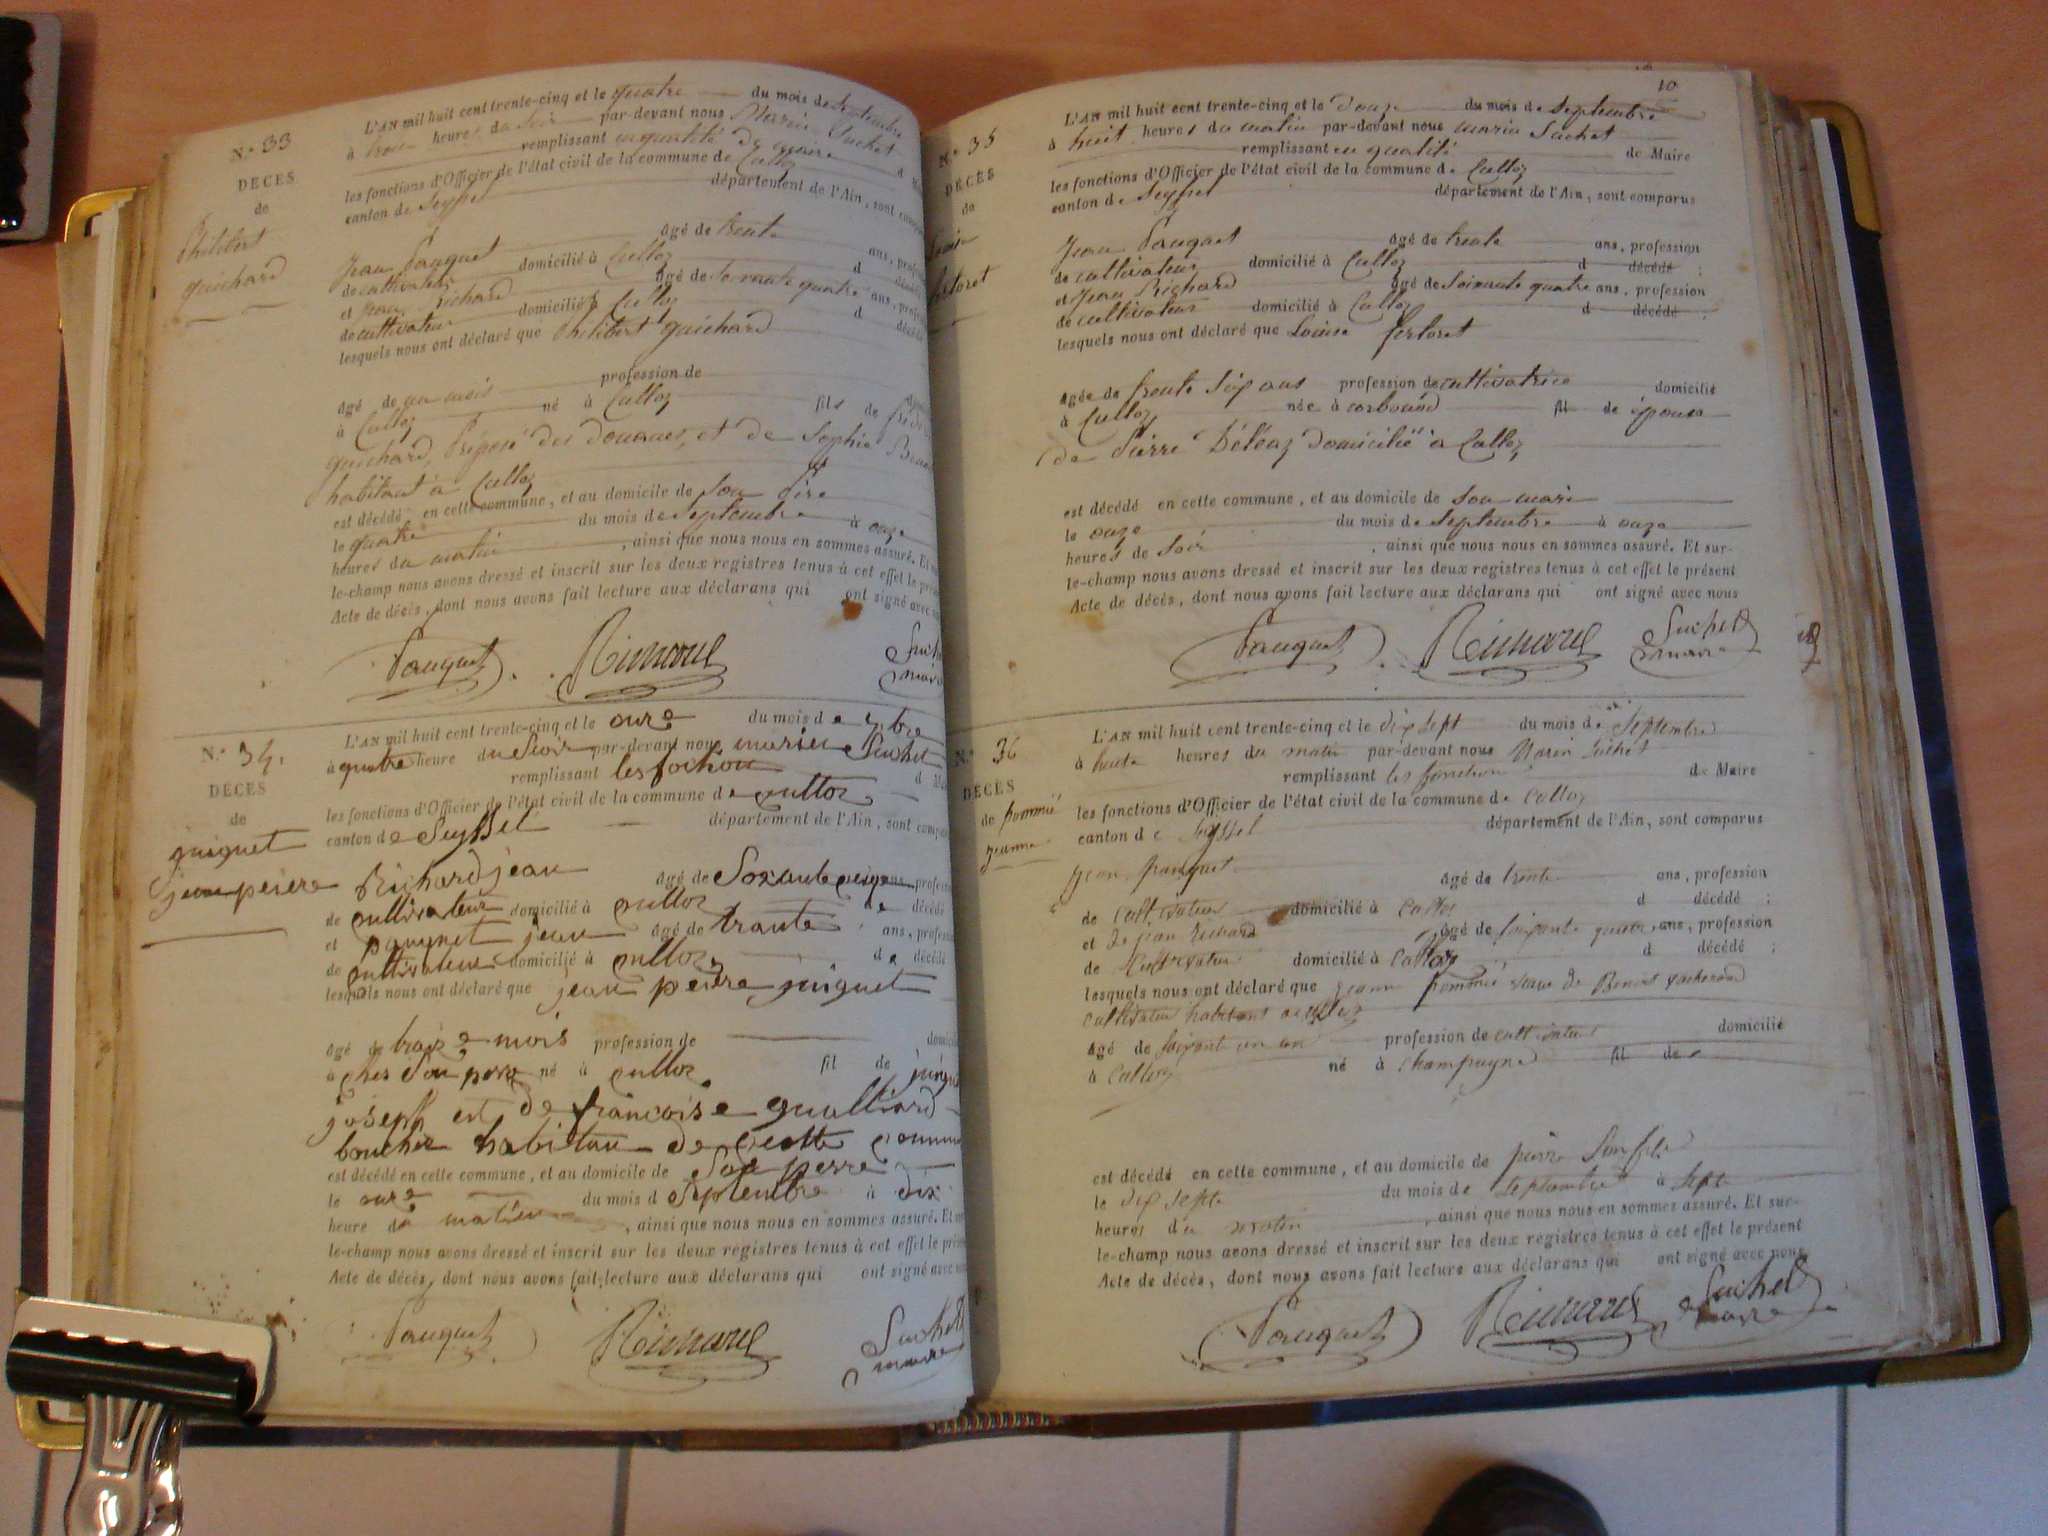 N.º 33
DECES
de
Philibert
guichard
L'AN mil huit cent trente-cinq et le quatre du mois de septembre
à trois heures du soir par-devant nous Marin Suchet
remplissant en qualité de maire
les fonctions d'Officier de l'état civil de la commune de Culloz
canton de Seyssel département de l'Ain, sont
Jean Pauquet agé de trente ans,
de cultivateur domicilié à Culloz d
et jean Richard agé de soixante quatre ans,
de cultivateur domicilié à Culloz d
lesquels nous ont déclaré que Philibert guichard
agé de un mois profession de
à Culloz né à Culloz fils de
guichard, Préposé des douanes, et de Sophie
habitant à Culloz
est décédé en cette commune, et au domicile de son père
le quatre du mois de septembre à onze
heures du matin, ainsi que nous nous en sommes assuré. Et
le-champ nous avons dressé et inscrit sur les deux registres tenus à cet effet le
Acte de décès, dont nous avons fait lecture aux déclarans qui ont signé avec
Pauquet Richard
N.º 34.
DECES
de
juiguet
jean peiere
L'AN mil huit cent trente-cinq et le onze du mois de 7bre
à quatre heure du soir par-devant nous marien Suchet
remplissant les fochon d
les fonctions d'Officier de l'état civil de la commune de cultoz
canton de Seyssel département de l'Ain, sont
Richard jean agé de
de cultivateur domicilié à cultoz de décédé
et pauquet jean agé de trante ans,
de cultivateur domicilié à cultoz de décédé
lesquels nous ont déclaré que jean peiere juiguet
agé de traize mois profession de
à ches son pere né à cultoz fil de
joseph est de francoise gualliard
bouchie habitan de cette
est décédé en cette commune, et au domicile de son perre
le onze du mois d Septembre à dix
heure du matien, ainsi que nous nous en sommes assuré. Et
le-champ nous avons dressé et inscrit sur les deux registres tenus à cet effet le
Acte de décès, dont nous avons fait lecture aux déclarans qui ont signé avec
Pauquet Richard Suchet
maire
10
N.º 35
DECES
de
L'AN mil huit cent trente-cinq et le douze du mois de septembre
à huit heures du matin par-devant nous marin Suchet
remplissant en qualité de Maire
les fonctions d'Officier de l'état civil de la commune de Culloz
canton de Seyssel département de l'Ain, sont comparus
Jean Pauquet agé de trente ans, profession
de cultivateur domicilié à Culloz d décédé ;
et Jean Richard agé de soixante quatre ans, profession
de cultivateur domicilié à Culloz d décédé ;
lesquels nous ont déclaré que Louise ferloret
agée de trente six ans profession de cultivatrice domicilié
à Culloz née à corbonod fil de épouse
de Pierre Déléaz domicilié à Culloz
est décédé en cette commune, et au domicile de son mari
le onze du mois de septembre à onze
heures de soir, ainsi que nous nous en sommes assuré. Et sur-
le-champ nous avons dressé et inscrit sur les deux registres tenus à cet effet le présent
Acte de décès, dont nous avons fait lecture aux déclarans qui ont signé avec nous
Pauquet Richard Suchet
maire
N.º 36
DECES
de pommié
jeanne
L'AN mil huit cent trente-cinq et le dix sept du mois de Septembre
à huite heures du matin par-devant nous Marin Suchet
remplissant les fonction de Maire
les fonctions d'Officier de l'état civil de la commune de Culloz
canton de Seyssel département de l'Ain, sont comparus
Jean pauquet agé de trente ans, profession
de cultivateur domicilié à Culloz d décédé ;
et de jean Richard agé de soixante quatre ans, profession
de cultivateur domicilié à Culloz d décédé ;
lesquels nous ont déclaré que jeanne pommié veuve de Benoit
cultivateur habitant a Culloz
agé de soixant un an profession de domicilié
à Culloz né à Champagne fil de
est décédé en cette commune, et au domicile de pierre son fils
le dix septe du mois de septembre à sept
heures du matin, ainsi que nous nous en sommes assuré. Et sur-
le-champ nous avons dressé et inscrit sur les deux registres tenus à cet effet le présent
Acte de décès, dont nous avons fait lecture aux déclarans qui ont signé avec nous
Pauquet Richard Suchet
maire